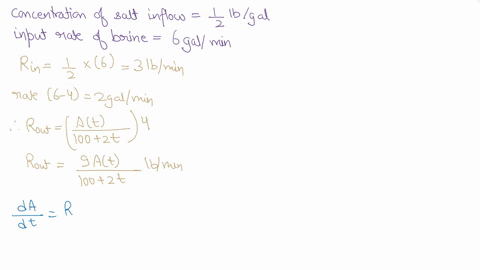 Concentration of salt inflow = 1/2 lb/gal
input rate of borine = 6 gal/min
Rin = 1/2 × (6) = 3 lb/min
rate (6-4) = 2 gal/min
∴ Rout = (A(t)/(100+2t)) 4
Rout = 9A(t)/(100+2t) lb/min
dA/dt = R